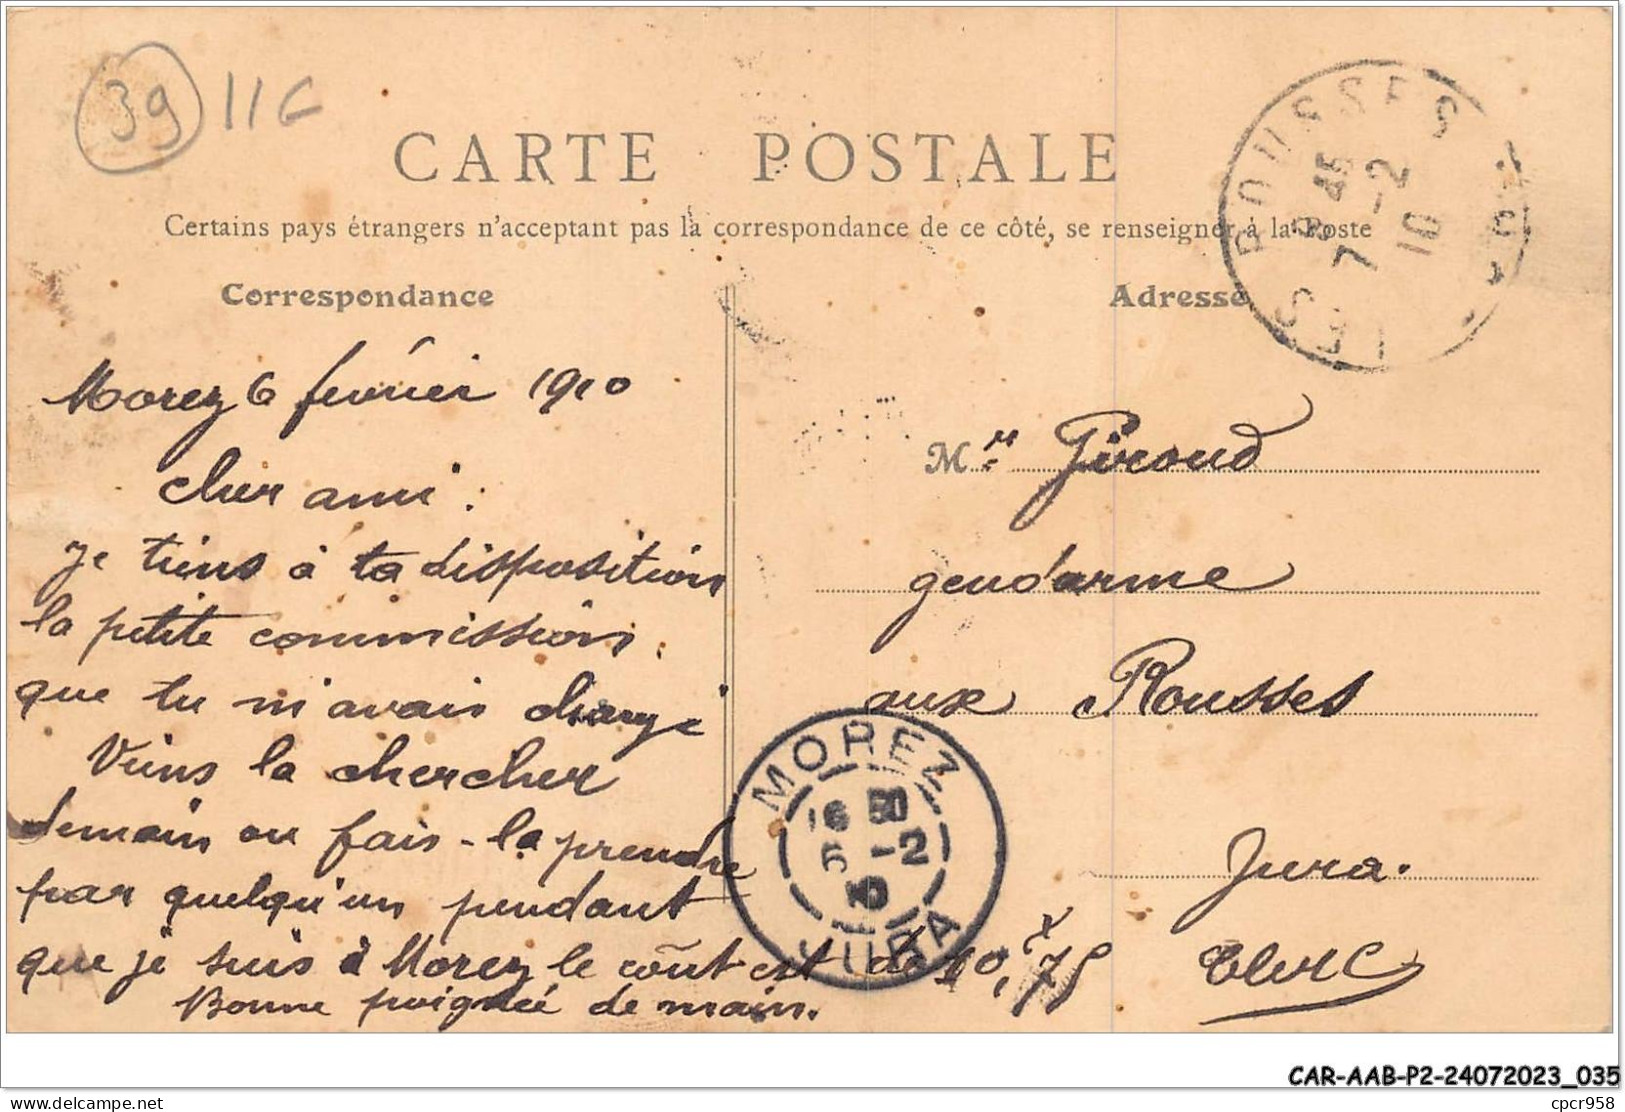 39 116
CARTE POSTALE
Certains pays étrangers n'acceptant pas la correspondance de ce côté, se renseigner à la Poste
Correspondance
Morez 6 février 1910
cher ami :
Je tiens à ta disposition
la petite commission
que tu m'avais chargé
Viens la chercher
demain ou fais-la prendre
par quelqu'un pendant
que je suis à Morez le coût est de 10,75
Bonne poignée de main.
Adresse
Mr Giroud
gendarme
aux Rousses
Jura.
LES ROUSSES
45
7 -2
10
MOREZ
-2
10
JURA
CAR-AAB-P2-24072023_035
delcampe.net
cpcr958